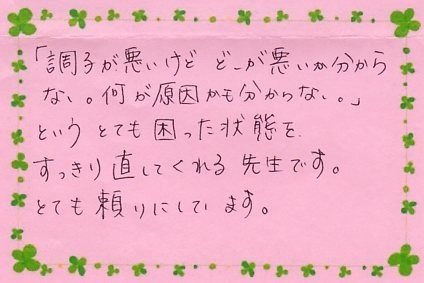 「調子が悪いけど どこが悪いか分から
ない。何が原因かも分からない。」
という とても困った状態を
すっきり直してくれる 先生です。
とても頼りにしています。